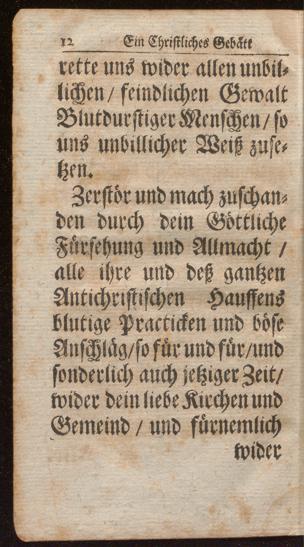 12 Ein Christliches Gebätt
rette uns wider allen unbil⸗
lichen / feindlichen Gewalt
Blutdurstiger Menschen / so
uns unbillicher Weiß zuse⸗
tzen.
Zerstör und mach zuschan⸗
den durch dein Göttliche
Fürsehung und Allmacht /
alle ihre und deß gantzen
Antichristischen Hauffens
blutige Practicken und böse
Anschläg / so für und für / und
sonderlich auch jetziger Zeit /
wider dein liebe Kirchen und
Gemeind / und fürnemlich
wider